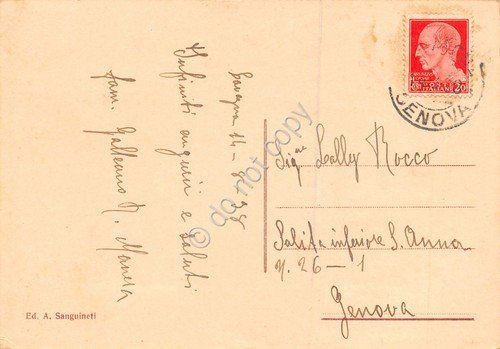 14-8-38
Infiniti auguri e saluti
fam.
Ed. A. Sanguineti
GENOVA
POSTE ITALIANE
20
Sig.na Lally Rocco
Salita inferiore S. Anna
N. 26 - 1
Genova
do not copy